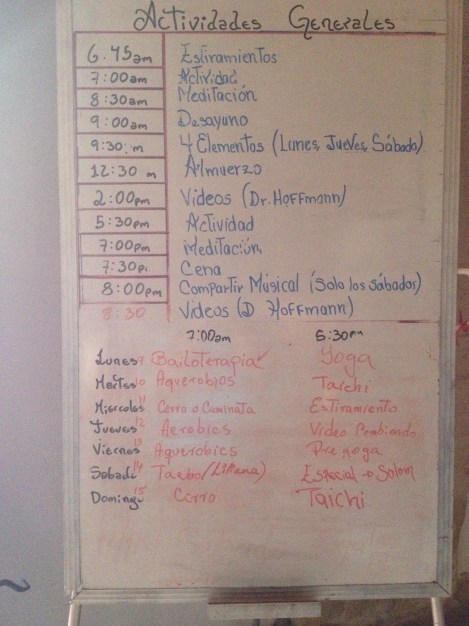 Actividades Generales
6.45am Estiramientos
7:00am Actividad
8:30am Meditación
9:00am Desayuno
9:30 m 4 Elementos (Lunes, Jueves, Sábado)
12:30 m Almuerzo
2:00pm Videos (Dr. Hoffmann)
5:30pm Actividad
7:00pm Meditación
7:30p. Cena
8:00pm Compartir Músical (Solo los sábados)
8:30 Videos (D Hoffmann)
7:00am 5:30pm
Lunes 9 Bailoterapia Yoga
Martes 10 Aquerobios Taichi
Miercoles 11 Cerro o Caminata Estiramiento
Jueves 12 Aerobics Video
Viernes 13 Aquerobics Pre yoga
Sabado 14 Taebo Especial
Domingo 15 Cerro Taichi